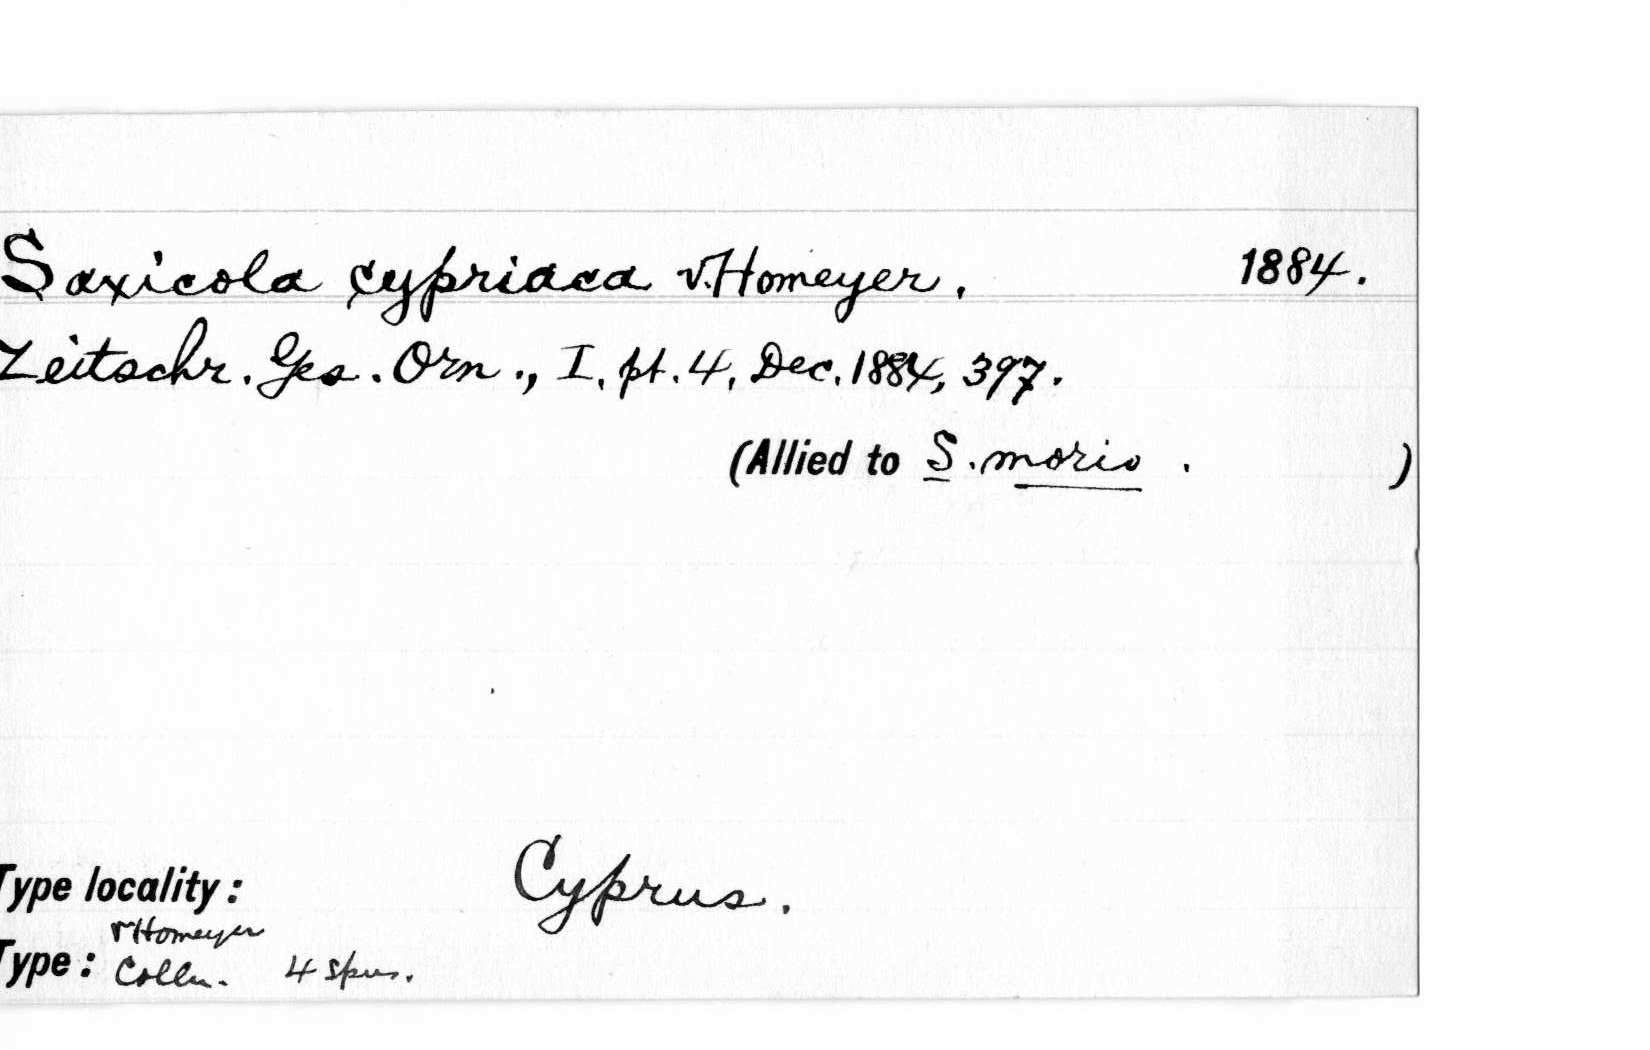 Saxicola cypriaca v.Homeyer. 1884.
Zeitschr. Ges. Orn., I, pt. 4, Dec. 1884, 397.
(Allied to S. morio . )
Type locality: Cyprus.
v Homeyer
Type: Colln. 4 spns.